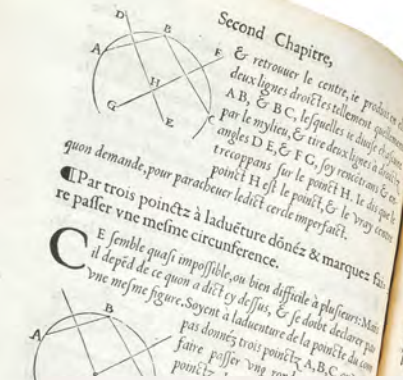 Second Chapitre,
D
B
A
F
H
G
E
C
& retrouuer le centre, ie produis en
deux lignes droictes tellement quellement
AB, & BC, lesquelles ie diuise chascune
par le mylieu, & tire deux lignes à droictz
angles DE, & FG, soy rencõtrans & en-
trecoppans sur le poinct H. Ie dis que le
poinct H est le poinct, & le vray centre
quon demande, pour paracheuer ledict cercle imperfaict.
¶Par trois poinctz à laduẽture dõnéz & marquez fai-
re passer vne mesme circunference.
CE semble quasi impossible, ou bien difficile à plusieurs: Mais
il depẽd de ce quon a dict cy dessus, & se doibt declarer par
vne mesme figure. Soyent à laduenture de la poincte du com
pas donnéz trois poinctz A, B, C,
faire passer vng
poinctz
A
B